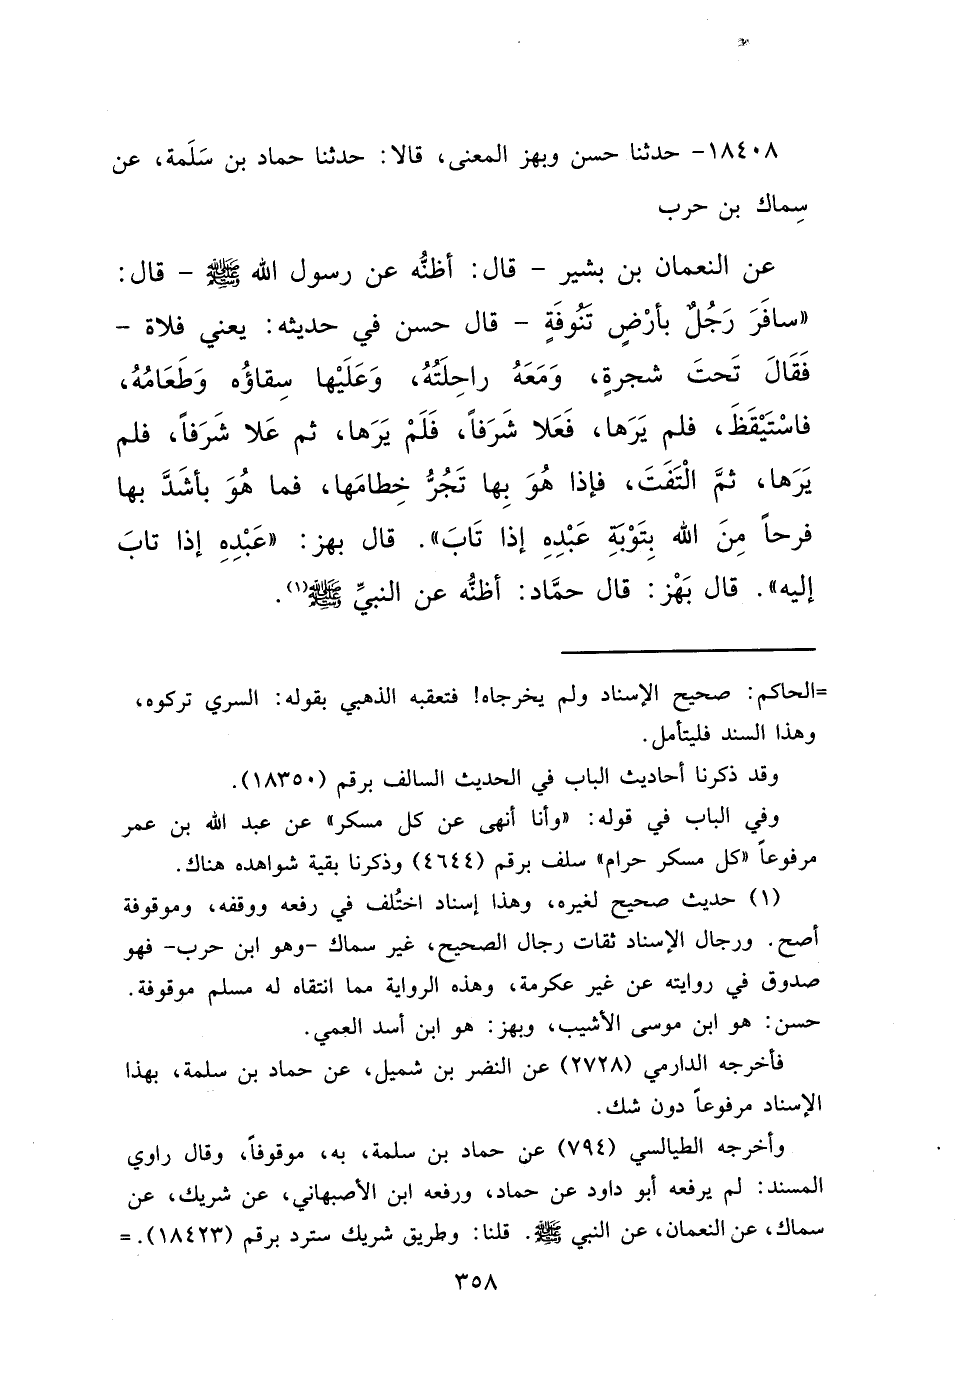 ١٨٤٠٨- حدثنا حسن وبهز المعنى، قالا: حدثنا حماد بن سَلَمة، عن
سِماك بن حرب
عن النعمان بن بشير - قال: أظنُّه عن رسول الله ﷺ - قال:
«سافَرَ رَجُلٌ بأرْضٍ تَنُوفَةٍ - قال حسن في حديثه: يعني فلاة -
فَقَالَ تَحتَ شجرةٍ، وَمَعَهُ راحِلَتُهُ، وَعَلَيْها سِقاؤُه وَطَعَامُهُ،
فاسْتَيْقَظَ، فلم يَرَها، فَعَلا شَرَفاً، فَلَمْ يَرَها، ثم عَلا شَرَفاً، فلم
يَرَها، ثمَّ الْتَفَتَ، فإذا هُوَ بِها تَجُرُّ خِطامَها، فما هُوَ بأشَدَّ بها
فرحاً مِنَ الله بِتَوْبَةِ عَبْدِهِ إذا تَابَ». قال بهز: «عَبْدِهِ إذا تابَ
إليه». قال بَهْز: قال حمَّاد: أظنُّه عن النبيِّ ﷺ(١).
=الحاكم: صحيح الإسناد ولم يخرجاه! فتعقبه الذهبي بقوله: السري تركوه،
وهذا السند فليتأمل.
وقد ذكرنا أحاديث الباب في الحديث السالف برقم (١٨٣٥٠).
وفي الباب في قوله: «وأنا أنهى عن كل مسكر» عن عبد الله بن عمر
مرفوعاً «كل مسكر حرام» سلف برقم (٤٦٤٤) وذكرنا بقية شواهده هناك.
(١) حديث صحيح لغيره، وهذا إسناد اختُلف في رفعه ووقفه، وموقوفة
أصح. ورجال الإسناد ثقات رجال الصحيح، غير سماك -وهو ابن حرب- فهو
صدوق في روايته عن غير عكرمة، وهذه الرواية مما انتقاه له مسلم موقوفة.
حسن: هو ابن موسى الأشيب، وبهز: هو ابن أسد العمي.
فأخرجه الدارمي (٢٧٢٨) عن النضر بن شميل، عن حماد بن سلمة، بهذا
الإسناد مرفوعاً دون شك.
وأخرجه الطيالسي (٧٩٤) عن حماد بن سلمة، به، موقوفاً، وقال راوي
المسند: لم يرفعه أبو داود عن حماد، ورفعه ابن الأصبهاني، عن شريك، عن
سماك، عن النعمان، عن النبي ﷺ. قلنا: وطريق شريك سترد برقم (١٨٤٢٣).=
٣٥٨